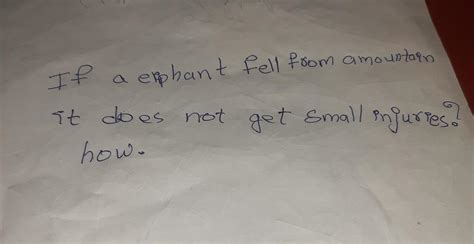 If a enphant fell from amountain
it does not get small injuries?
how.